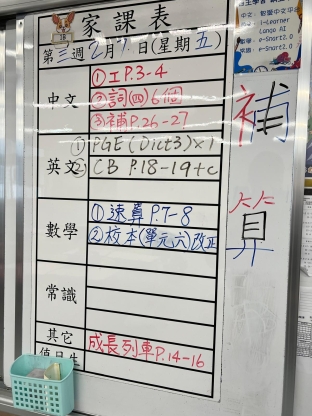 家課表
3B
第三週2月7日(星期五)
中文
①工P.3-4
②詞(四)6個
③補P.26-27
英文
①PGE(Dict3)×1
②CB P.18-19+c
數學
①速算P.7-8
②校本(單元六)改正
常識
其它
成長列車P.14-16
值日生
補
算
i-Learner
Lango AI
e-Smart2.0
e-Smart2.0